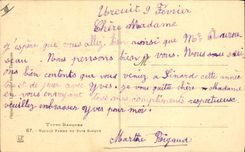 Ebreuil 9 Février
Chère Madame
J'espère que vous allez bien ainsi que Mr
seau. Nous pensons bien à vous. Nous
bien contents que vous veniez à Pénard cette année
et de jouer avec Yves. je vous quitte chère Madame
en vous envoyant tous mes compliments respectueuse
veuillez embrasser Yves pour moi.
Marthe Bigaud
TYPES BASQUES
67. VIEILLE FEMME DU PAYS BASQUE